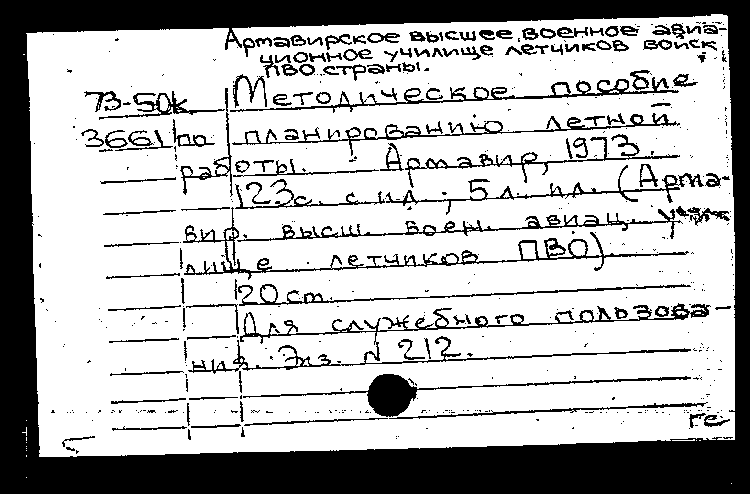 Армавирское высшее военное авиа-
ционное училище летчиков войск
ПВО страны.
73-50к Методическое пособие
3661 по планированию летной
работы. Армавир, 1973.
123с. с ил.; 5 л. ил. (Арма-
вир. высш. воен. авиац. учи
лище летчиков ПВО)
20 см.
Для служебного пользова-
ния. Экз. N 212.
ге